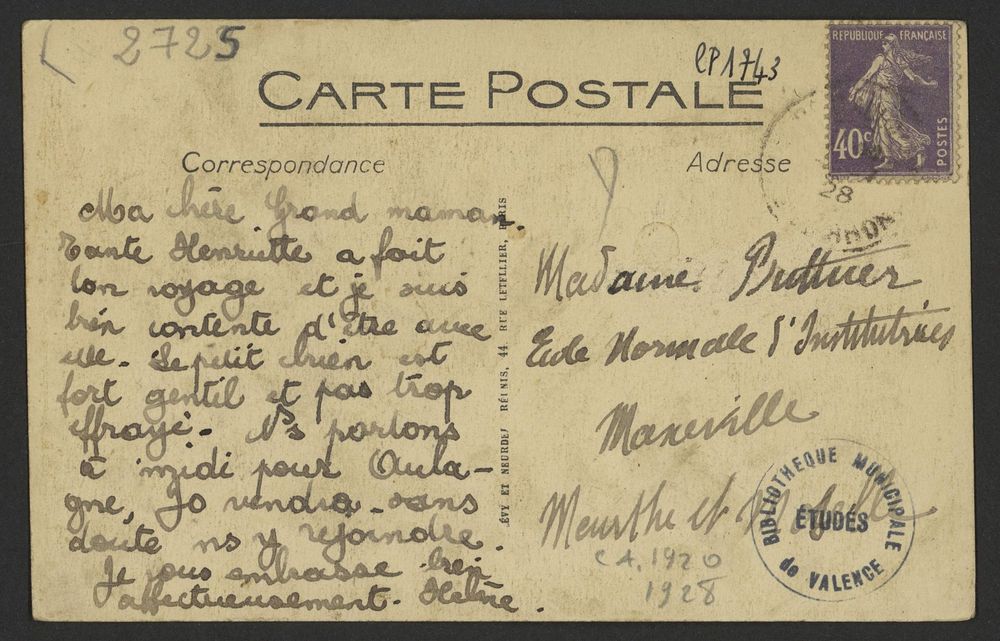 2725
CP1743
REPUBLIQUE FRANÇAISE
40c
POSTES
CARTE POSTALE
Correspondance
Adresse
28
Ma chère Grand maman.
Tante Henriette a fait
bon voyage et je suis
bien contente d'être avec
elle. Le petit chien est
fort gentil et pas trop
effrayé. Ns partons
à midi pour Aula-
gne, Jo viendra sans
doute ns y rejoindre.
Je vous embrasse bien
affectueusement. Hélène.
ÉVY ET NEURDEI RÉUNIS, 44 RUE LETELLIER, PARIS
Madame
Ecole Normale d'Institutrices
Maxeville
Meurthe et Moselle
CA. 1920
1928
BIBLIOTHEQUE MUNICIPALE
ÉTUDES
de VALENCE